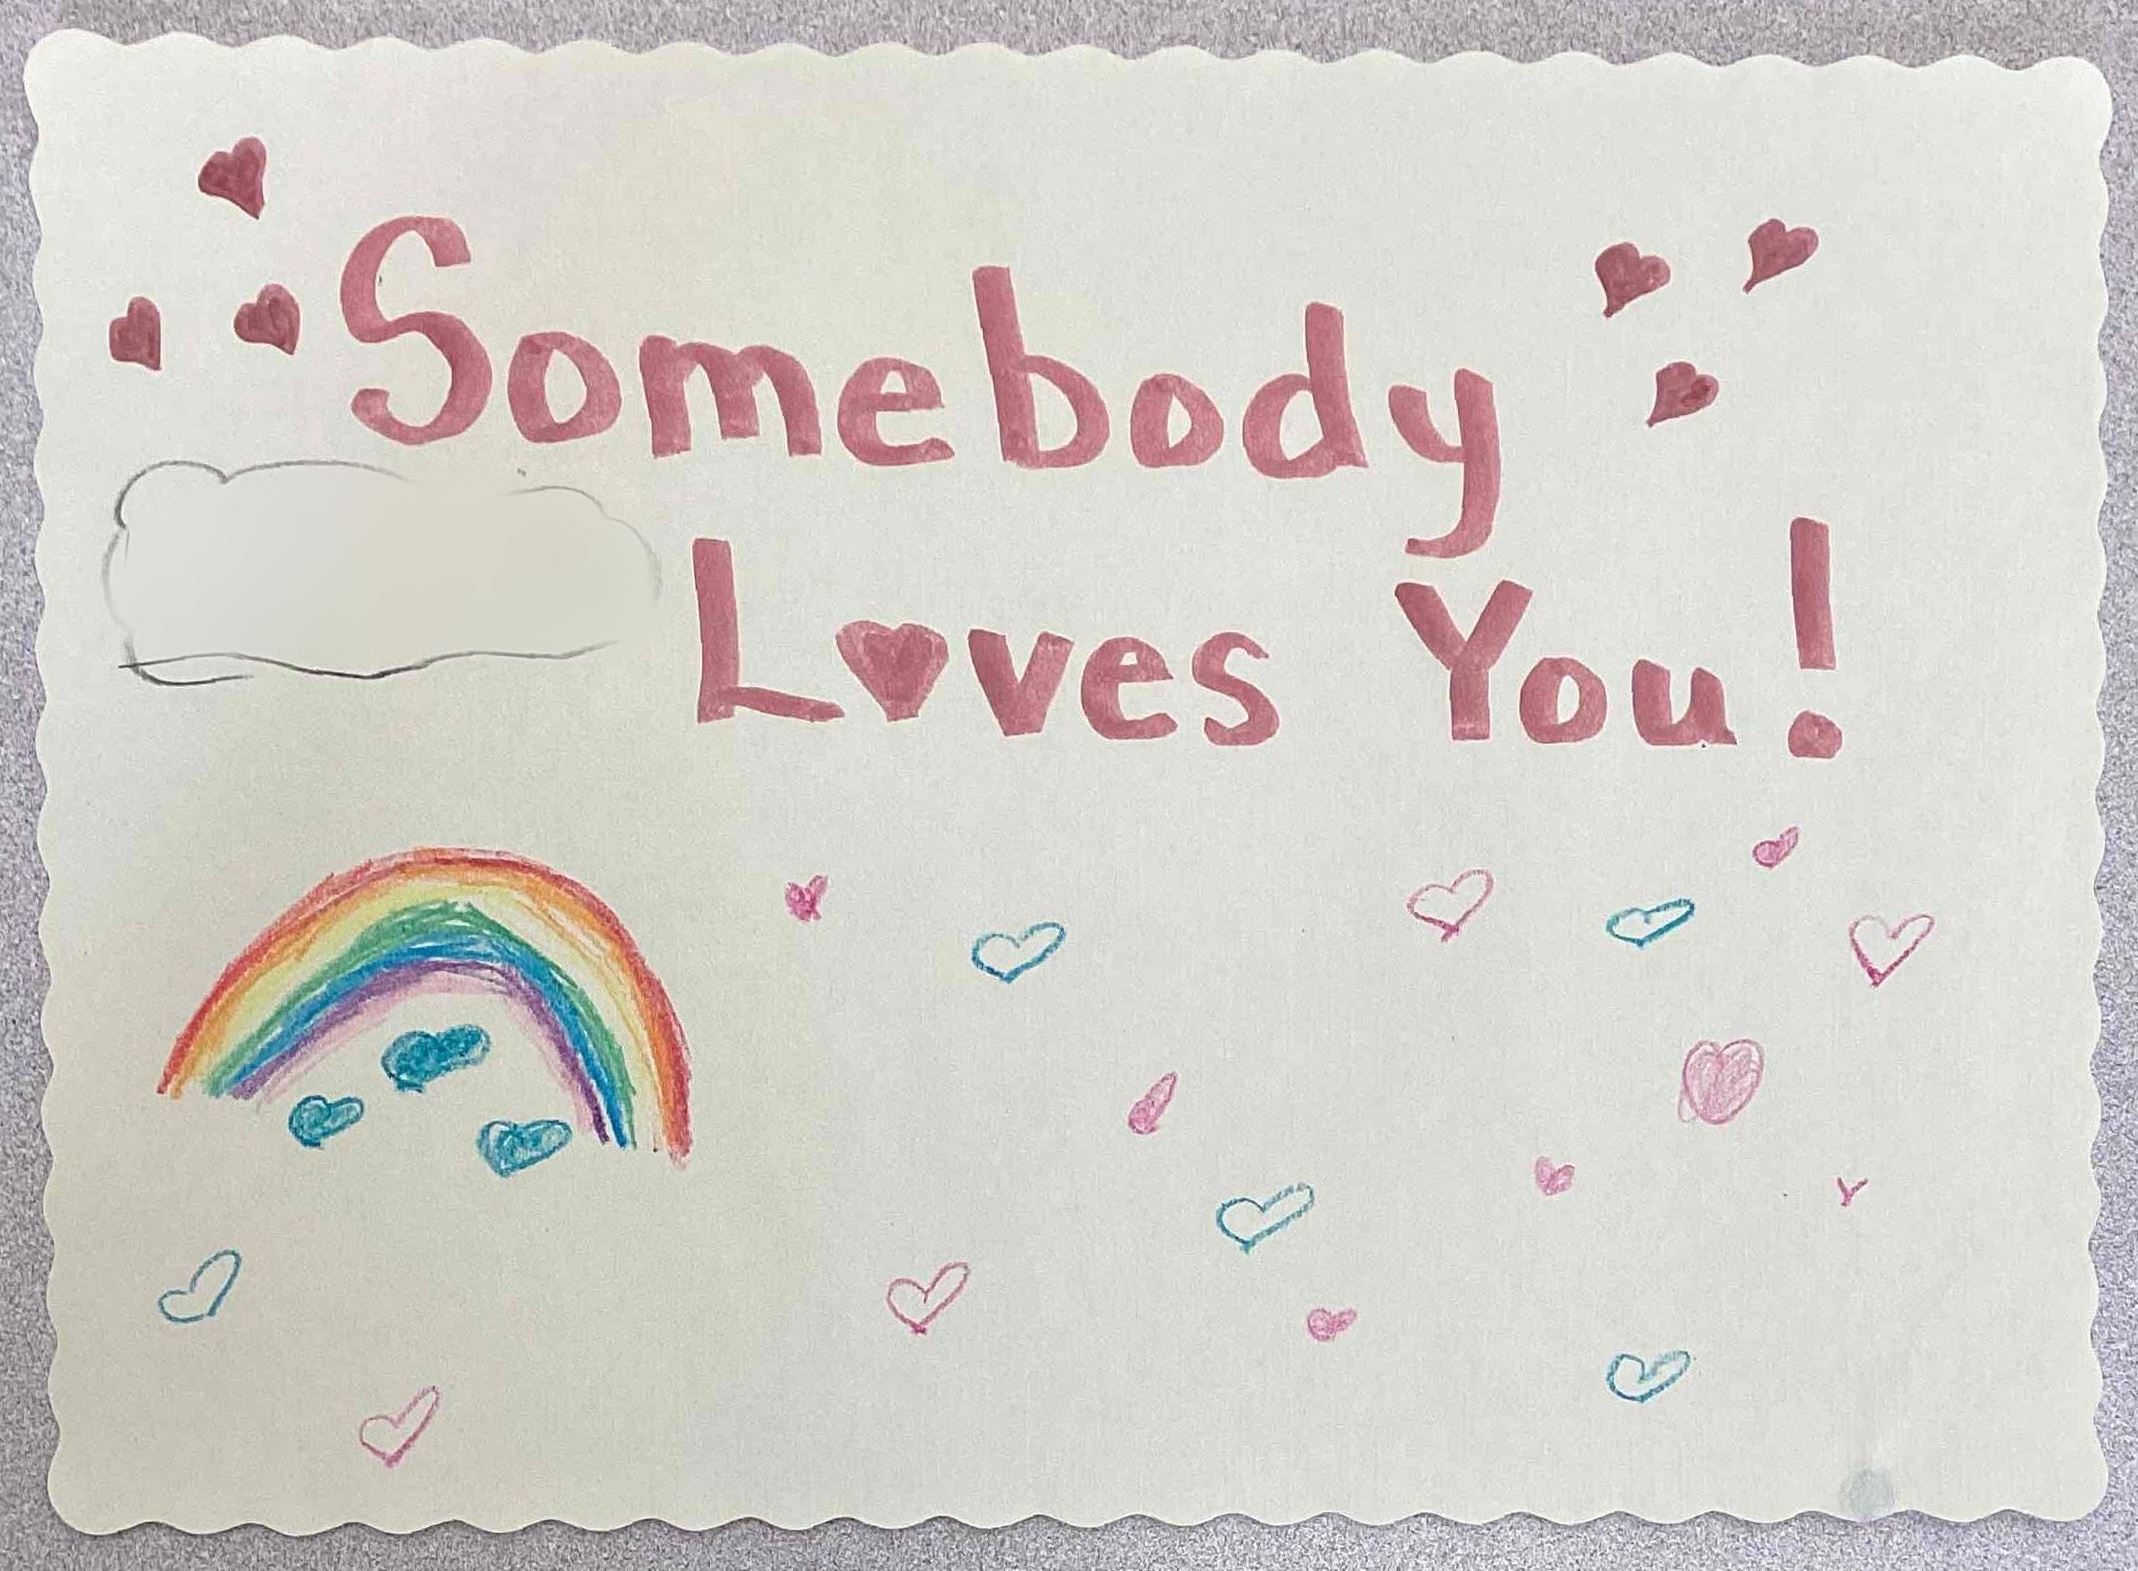 Somebody
Loves You!